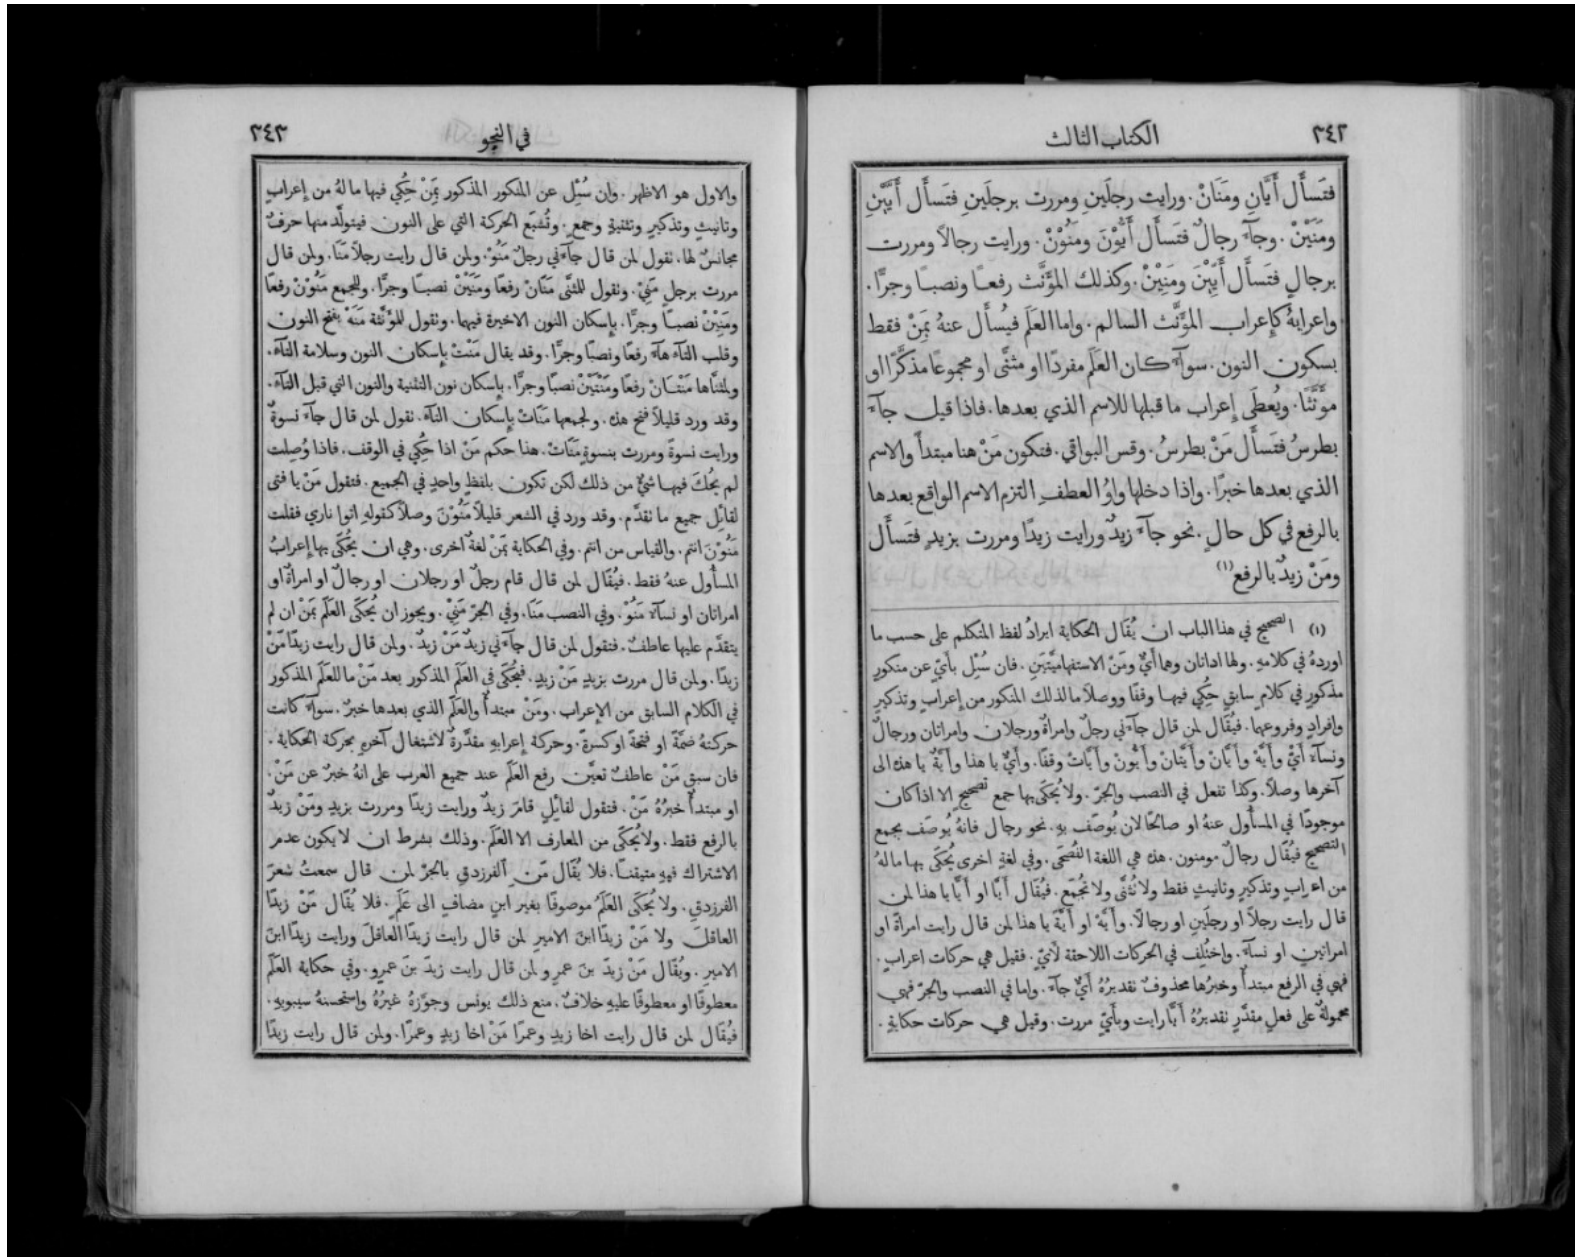 ٣٤٢
الكتاب الثالث
فتَسأَل أَيَّانِ ومَنَانْ. ورايت رجلَينِ ومررت برجلَينِ فتَسأَل أَيَّينِ
ومَنَيْنْ. وجآءَ رجالٌ فتَسأَل أَيُّوْنَ ومَنُوْنْ. ورايت رجالاً ومررت
برجالٍ فتَسأَل أَيِّيْنَ ومَنِيْنْ. وكذلك المؤَنَّث رفعـًا ونصبـًا وجرًّا.
واعرابهُ كإِعراب المؤَنَّث السالم. واما العَلَم فيُسأَل عنهُ بِمَنْ فقط
بسكون النون. سوآءٌ كان العَلَم مفردًا او مثنًّى او مجموعًا مذكَّرًا او
مؤَنَّثًا. ويُعطَى إِعراب ما قبلها للاسم الذي بعدها. فاذا قيل جآءَ
بطرسُ فتَسأَل مَنْ بطرسُ. وقس البواقي. فتكون مَنْ هنا مبتدأً والاسم
الذي بعدها خبرًا. واذا دخلها واوُ العطفِ التزم الاسم الواقع بعدها
بالرفع في كل حالٍ. نحو جآءَ زيدٌ ورايت زيدًا ومررت بزيدٍ فتَسأَل
ومَنْ زيدٌ بالرفع (١)
(١) الصحيح في هذا الباب ان يُقَال الحكاية ايرادُ لفظ المتكلم على حسب ما
اوردهُ في كلامهِ. ولها اداتان وهما أَيٌّ ومَنْ الاستفهاميَّتَينِ. فان سُئِل بأَيٍّ عن منكورٍ
مذكورٍ في كلامٍ سابقٍ حُكِي فيهـا وقفًا ووصلاً ما لذلك المنكور من إِعرابٍ وتذكيرٍ
وافرادٍ وفروعهما. فيُقَال لمن قال جآءَني رجلٌ وامراةٌ ورجلان وامراتان ورجالٌ
ونسآءٌ أَيٌّ وأَيَّهْ وأَيَّانْ وأَيَّتانْ وأَيُّونْ وأَيَّاتْ وقفًا. وأَيٌّ يا هذا وأَيَّةٌ يا هذه الى
آخرها وصلاً. وكذا تفعل في النصب والجرّ. ولا يُحكَى بها جمع تصحيحٍ الا اذا كان
موجودًا في المسأُول عنهُ او صالحًا لان يُوصَف بهِ. نحو رجال فانهُ يُوصَف بجمع
التصحيح فيُقَال رجالٌ مومنون. هذه هي اللغة الفُصحَى. وفي لغةٍ اخرى يُحكَى بها ما لهُ
من اعرابٍ وتذكيرٍ وتانيثٍ فقط ولا تُثنَّى ولا تُجمَع. فيُقَال أَيًّا او أَيًّا يا هذا لمن
قال رايت رجلاً او رجلَينِ او رجالاً. وأَيَّهْ او أَيَّةً يا هذا لمن قال رايت امراةً او
امراتينِ او نسآءً. واختُلِف في الحركات اللاحقة لأَيٍّ. فقيل هي حركات اعرابٍ.
فهي في الرفع مبتدأٌ وخبرُها محذوفٌ تقديرُهُ أَيٌّ جآءَ. واما في النصب والجرّ فهي
محمولةٌ على فعلٍ مقدَّرٍ تقديرُهُ أَيًّا رايت وبأَيٍّ مررت. وقيل هي حركات حكايةٍ.
في النحو
٣٤٣
والاول هو الاظهر. وان سُئِل عن المنكور المذكور بِمَنْ حُكِي فيها ما لهُ من إِعرابٍ
وتانيثٍ وتذكيرٍ وتثنيةٍ وجمعٍ. وتُشبَع الحركة التي على النون فيتولَّد منها حرفٌ
مجانسٌ لها. تقول لمن قال جآءَني رجلٌ مَنُوْ. ولمن قال رايت رجلاً مَنَا. ولمن قال
مررت برجلٍ مَنِيْ. وتقول للمثنَّى مَنَانْ رفعًا ومَنَيْنْ نصبـًا وجرًّا. وللجمع مَنُوْنْ رفعًا
ومَنِيْنْ نصبـًا وجرًّا. بإِسكان النون الاخيرة فيهما. وتقول للمؤَنَّثة مَنَهْ بفتح النون
وقلب التآء هآءً رفعًا ونصبًا وجرًّا. وقد يقال مَنْتْ بإِسكان النون وسلامة التآء.
ولمثنَّاها مَنْتَـانْ رفعًا ومَنْتَيْنْ نصبًا وجرًّا. بإِسكان نون التثنية والنون التي قبل التآء.
وقد ورد قليلاً فتح هذه. ولجمعها مَنَاتْ بإِسكان التآء. تقول لمن قال جآءَ نسوةٌ
ورايت نسوةً ومررت بنسوةٍ مَنَاتْ. هذا حكم مَنْ اذا حُكِي في الوقف. فاذا وُصِلت
لم يُحكَ فيهـا شيٌّ من ذلك لكن تكون بلفظٍ واحدٍ في الجميع. فتقول مَنْ يا فتى
لقائِل جميع ما تقدَّم. وقد ورد في الشعر قليلاً مَنُوْنَ وصلاً كقولهِ اتوا ناري فقلت
مَنُوْنَ انتم. والقياس من انتم. وفي الحكاية بِمَنْ لغةٌ اخرى. وهي ان يُحكَى بها إِعرابُ
المسأُول عنهُ فقط. فيُقَال لمن قال قام رجلٌ او رجلان او رجالٌ او امراةٌ او
امراتان او نسآءٌ مَنُوْ. وفي النصب مَنَا. وفي الجرّ مَنِيْ. ويجوز ان يُحكَى العَلَم بِمَنْ ان لم
يتقدَّم عليها عاطفٌ. فتقول لمن قال جآءَني زيدٌ مَنْ زيدٌ. ولمن قال رايت زيدًا مَنْ
زيدًا. ولمن قال مررت بزيدٍ مَنْ زيدٍ. فيُحكَى في العَلَم المذكور بعد مَنْ ما للعَلَم المذكور
في الكلام السابق من الإِعراب. ومَنْ مبتدأٌ والعَلَم الذي بعدها خبرٌ. سوآءٌ كانت
حركتهُ ضمَّةً او فتحةً او كسرةً. وحركة إِعرابهِ مقدَّرةٌ لاشتغال آخرهِ بحركة الحكاية.
فان سبق مَنْ عاطفٌ تعيَّن رفع العَلَم عند جميع العرب على انهُ خبرٌ عن مَنْ.
او مبتدأٌ خبرُهُ مَنْ. فتقول لقائِلٍ قامَ زيدٌ ورايت زيدًا ومررت بزيدٍ ومَنْ زيدٌ
بالرفع فقط. ولا يُحكَى من المعارف الا العَلَم. وذلك بشرط ان لا يكون عدم
الاشتراك فيهِ متيقنـًا. فلا يُقَال مَنِ ٱلفرزدقِ بالجرّ لمن قال سمعتُ شعرَ
الفرزدقِ. ولا يُحكَى العَلَمُ موصوفًا بغير ابنٍ مضافٍ الى عَلَمٍ. فلا يُقَال مَنْ زيدًا
العاقلَ ولا مَنْ زيدًا ابنَ الاميرِ لمن قال رايت زيدًا العاقلَ ورايت زيدًا ابنَ
الاميرِ. ويُقَال مَنْ زيدَ بنَ عمرٍو لمن قال رايت زيدَ بنَ عمرٍو. وفي حكاية العَلَم
معطوفًا او معطوفًا عليهِ خلافٌ. منع ذلك يونس وجوَّزهُ غيرُهُ واستحسنهُ سيبويهِ.
فيُقَال لمن قال رايت اخا زيدٍ وعمرًا مَنْ اخا زيدٍ وعمرًا. ولمن قال رايت زيدًا